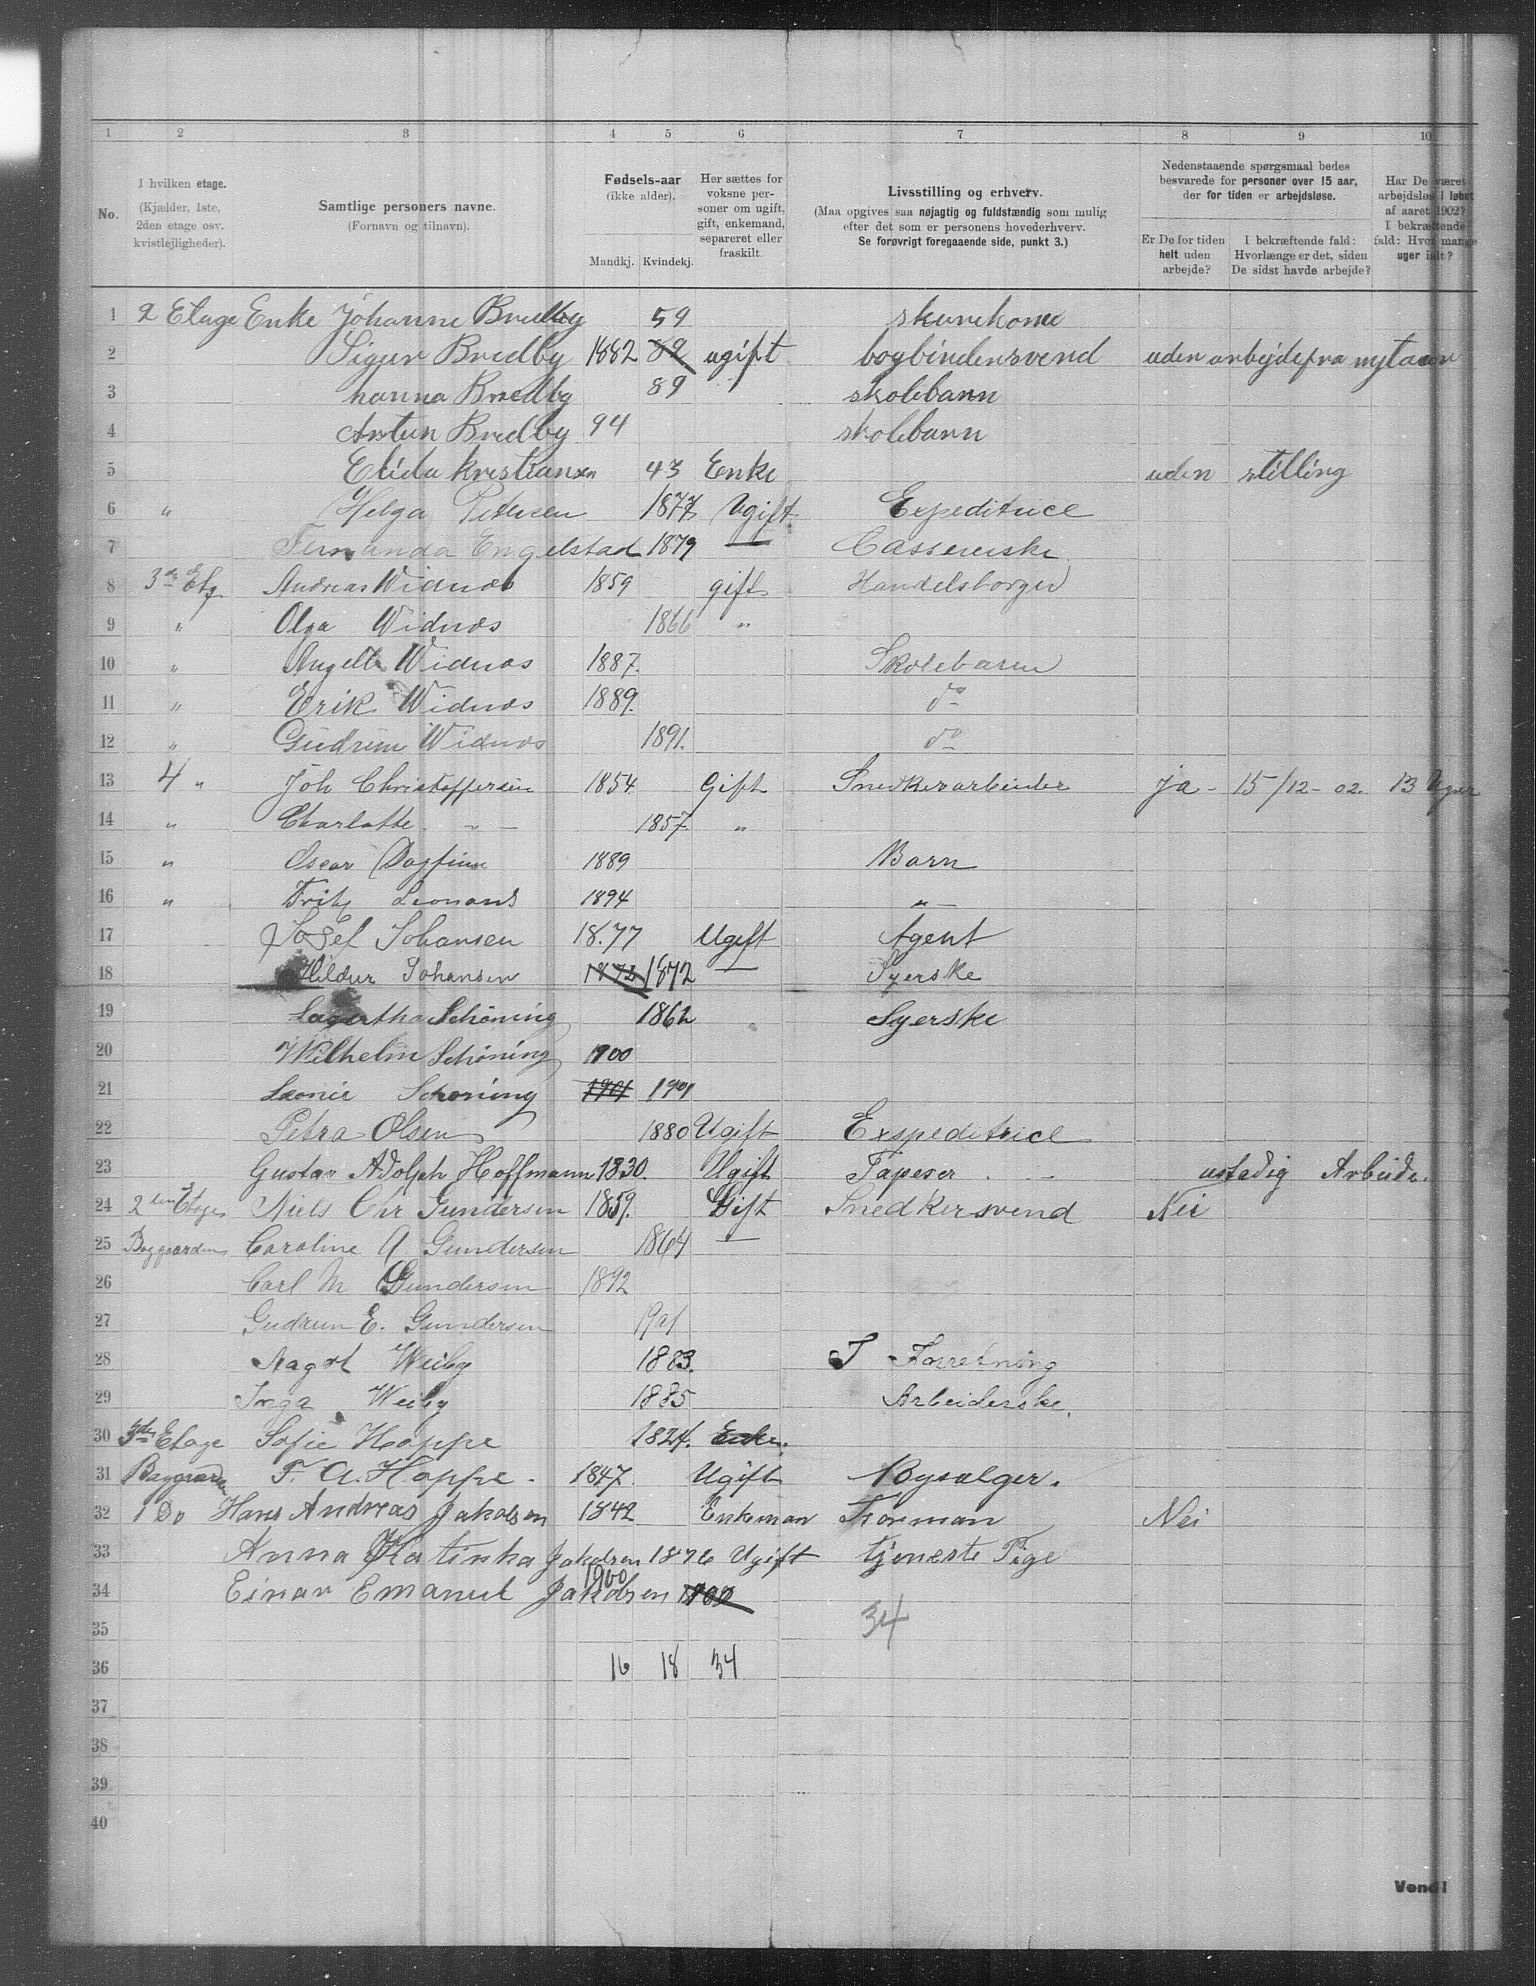 1 2 3 4 5 6 7 8 9 10
No.
I hvilken etage.
(Kjælder, 1ste,
2den etage osv.
kvistlejligheder).
Samtlige personers navne.
(Fornavn og tilnavn).
Fødsels-aar
(ikke alder).
Mandkj. Kvindekj.
Her sættes for
voksne per-
soner om ugift,
gift, enkemand,
separeret eller
fraskilt.
Livsstilling og erhverv.
(Maa opgives saa nøjagtig og fuldstændig som mulig
efter det som er personens hovederhverv.
Se forøvrigt foregaaende side, punkt 3.)
Nedenstaaende spørgsmaal bedes
besvarede for personer over 15 aar,
der for tiden er arbejdsløse.
Er De for tiden
helt uden
arbejde?
I bekræftende fald:
Hvorlænge er det, siden
De sidst havde arbejde?
Har De været
arbejdsløs i løbet
af aaret 1902?
I bekræftende
fald: Hvor mange
uger ialt?
1 2 Etage Enke Johanne Bredby 59 skurekone
2 Sigur Bredby 1882 82 ugift bogbindersvend uden arbejde fra nytaar
3 hanna Bredby 89 skolebarn
4 Anton Bredby 94 skolebarn
5 Elida Kristiansen 43 Enke uden stilling
6 " Helga Petersen 1877 Ugift Expeditrice
7 Fernanda Engelstad 1879 — Cassererske
8 3de Etg Andreas Widnes 1859 gift Handelsborger
9 " Olga Widnes 1866 "
10 " Widnes 1887. Skolebarn
11 " Erik Widnes 1889. do
12 " Gudrun Widnes 1891. do
13 4 " Joh Christoffersen 1854 Gift Snedkerarbeider ja - 15/12 - 02. 13 Uger
14 " Charlotte - " - 1857. "
15 " Oscar Dagfinn 1889 Barn
16 " Fritz Leonard 1894 "
17 Josef Johansen 18.77 Ugift Agent
18 Hildur Johansen 1872 1872 — Syerske
19 Lagertha Schöning 1862 Syerske
20 Wilhelm Schöning 1900
21 Leonie Schöning 1901 1901
22 Petra Olsen 1880 Ugift Exspeditrice
23 Gustav Adolph Hoffmann 1830. Ugift Tapeser. ustadig Arbeide.
24 2den Etage Niels Chr Gundersen 1859. Gift Snedkersvend Nei
25 Baggaarden Caroline A Gundersen 1864 —
26 Carl M Gundersen 1892
27 Gudrun E. Gundersen 1901
28 Aagot Weiby 1883. I Forretning
29 Inga Weiby 1885 Arbeiderske.
30 3den Etage Sofie Hoppe 1824. Enke.
31 Baggaarden F. A. Hoppe. 1847. Ugift Bysælger.
32 1 Do Hans Andreas Jakobsen 1842 Enkeman Forman Nei
33 Anna Katinka Jakobsen 1876 Ugift tjeneste Pige
34 Einar Emanuel Jakobsen 1900 1900
35 34
36 16 18 34
37
38
39
40
Vend!